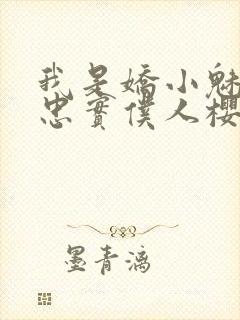 我是嬌小魅
忠實僕人櫻
墨青漓